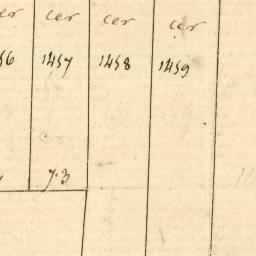 cer cer cer cer
1457 1458 1459
7.3